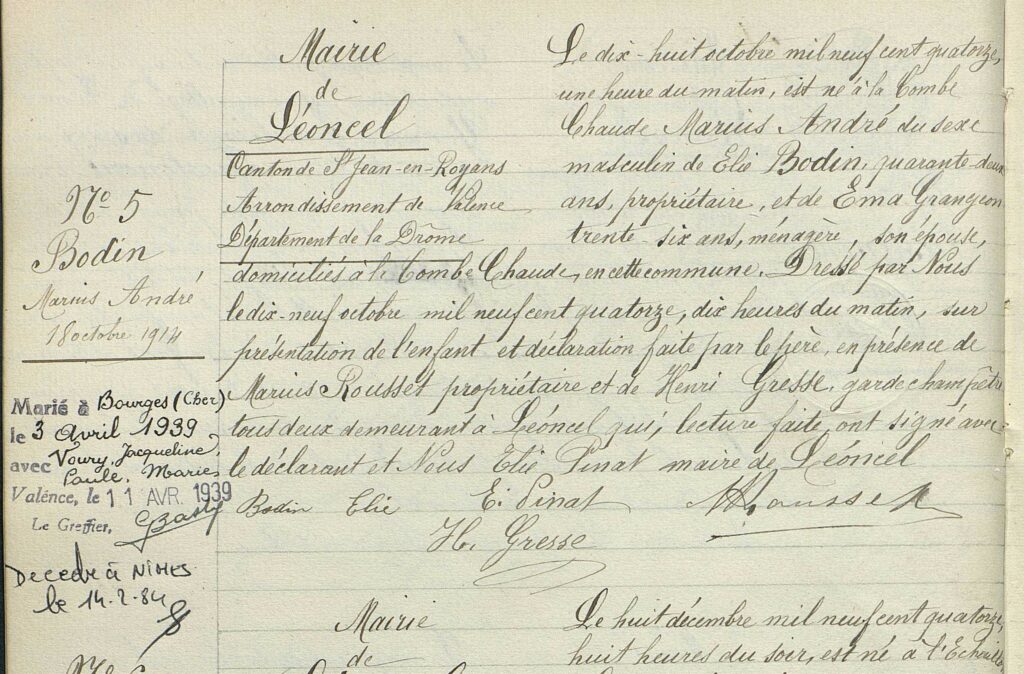 Mairie
de
Léoncel
Canton de St Jean-en-Royans
Arrondissement de Valence
Département de la Drôme
Nº 5
Bodin
Marius André
18 octobre 1914
Le dix-huit octobre mil neuf cent quatorze,
une heure du matin, est né à la Combe
Chaude Marius André du sexe
masculin de Elie Bodin, quarante-deux
ans, propriétaire, et de Ema Grangeon
trente-six ans, ménagère, son épouse,
domiciliés à la Combe Chaude, en cette commune. Dressé par Nous
le dix-neuf octobre mil neuf cent quatorze, dix heures du matin, sur
présentation de l'enfant et déclaration faite par le père, en présence de
Marius Rousset propriétaire et de Henri Gresse, garde champêtre
tous deux demeurant à Léoncel qui, lecture faite, ont signé avec
le déclarant et Nous Elie Pinat maire de Léoncel
Bodin Elie E. Pinat M Rousset
H. Gresse
Marié à Bourges (Cher)
le 3 Avril 1939
avec Voury, Jacqueline,
Paule, Marie
Valence, le 11 AVR. 1939
Le Greffier,
Décédé à NIMES
le 14-2-84
Mairie
de
Le huit décembre mil neuf cent quatorze,
huit heures du soir, est né à l'